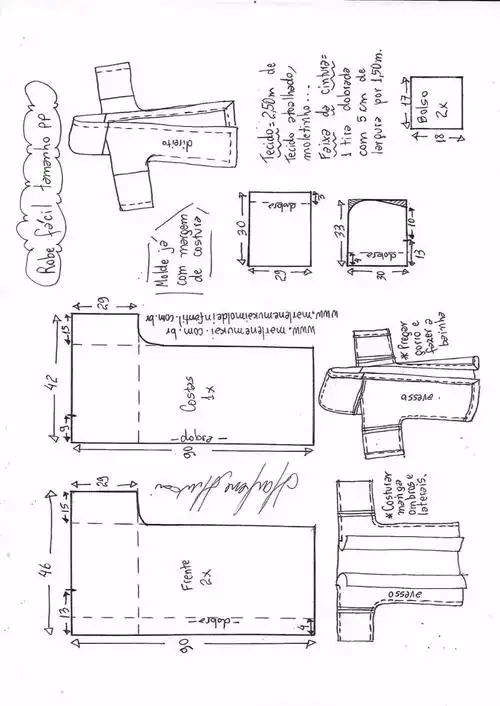 Robe fácil tamanho PP
direito
Tecido = 2,50m de
Tecido atoalhado,
moletinho...
Faixa da cintura=
1 tira dobrada
com 5 cm de
largura por 1,50m.
17
Bolso
2x
18
Molde já
com margem
de costura
30
dobra
3
29
33
4
dobra
10
13
30
www.marlenemukai.com.br
www.marlenemukaimoldeinfantil.com.br
29
15
42
9
Costas
1x
dobra
90
29
15
46
13
Frente
2x
dobra
4
90
Marlene Mukai
*Pregar
gorro e
fazer a
bainha
avesso
*Costurar
manga
ombros e
laterais.
avesso